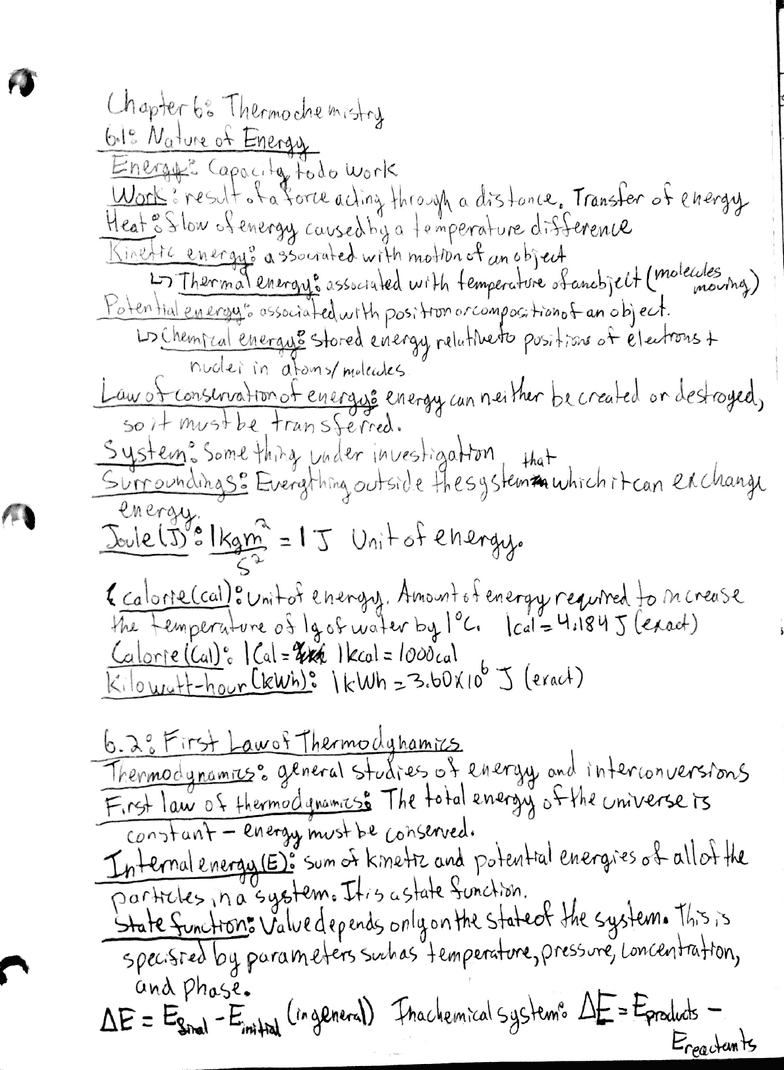 Chapter 6: Thermochemistry
6.1: Nature of Energy
Energy: Capacity to do work
Work: result of a force acting through a distance. Transfer of energy
Heat: flow of energy caused by a temperature difference
Kinetic energy: associated with motion of an object
↳ Thermal energy: associated with temperature of an object (molecules moving)
Potential energy: associated with position or composition of an object.
↳ Chemical energy: stored energy relative to positions of electrons +
nuclei in atoms/molecules
Law of conservation of energy: energy can neither be created or destroyed,
so it must be transferred.
System: Something under investigation
Surroundings: Everything outside the system that which it can exchange
energy.
Joule (J): 1 kgm²/s² = 1 J Unit of energy.
calorie (cal): unit of energy. Amount of energy required to increase
the temperature of 1g of water by 1°C. 1cal = 4.184 J (exact)
Calorie (Cal): 1 Cal = 1 kcal = 1000 cal
Kilowatt-hour (kWh): 1 kWh = 3.60 x 10⁶ J (exact)
6.2: First Law of Thermodynamics
Thermodynamics: general studies of energy and interconversions
First law of thermodynamics: The total energy of the universe is
constant – energy must be conserved.
Internal energy (E): sum of kinetic and potential energies of all of the
particles in a system. It is a state function.
State function: Value depends only on the state of the system. This is
specified by parameters such as temperature, pressure, concentration,
and phase.
ΔE = Efinal - Einitial (in general) In a chemical system: ΔE = Eproducts -
Ereactants